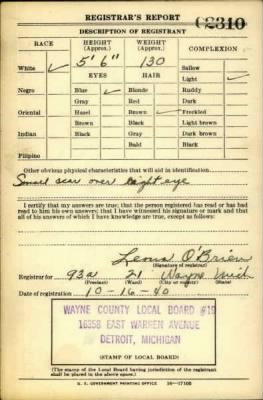 REGISTRAR'S REPORT
C2310
DESCRIPTION OF REGISTRANT
RACE HEIGHT (Approx.) WEIGHT (Approx.) COMPLEXION
White ✓ 5' 6" 130 Sallow
EYES HAIR Light ✓
Negro Blue ✓ Blonde Ruddy
Gray Red Dark
Oriental Hazel Brown ✓ Freckled
Brown Black Light brown
Indian Black Gray Dark brown
Bald Black
Filipino
Other obvious physical characteristics that will aid in identification
Small scar over right eye
I certify that my answers are true; that the person registered has read or has had
read to him his own answers; that I have witnessed his signature or mark and that
all of his answers of which I have knowledge are true, except as follows:
Leona O'Brien
(Signature of registrar)
Registrar for 93a 21 Wayne Mich
(Precinct) (Ward) (City or county) (State)
Date of registration 10-16-40
WAYNE COUNTY LOCAL BOARD #19
16358 EAST WARREN AVENUE
DETROIT, MICHIGAN
(STAMP OF LOCAL BOARD)
(The stamp of the Local Board having jurisdiction of the registrant
shall be placed in the above space.)
U. S. GOVERNMENT PRINTING OFFICE 16—17108